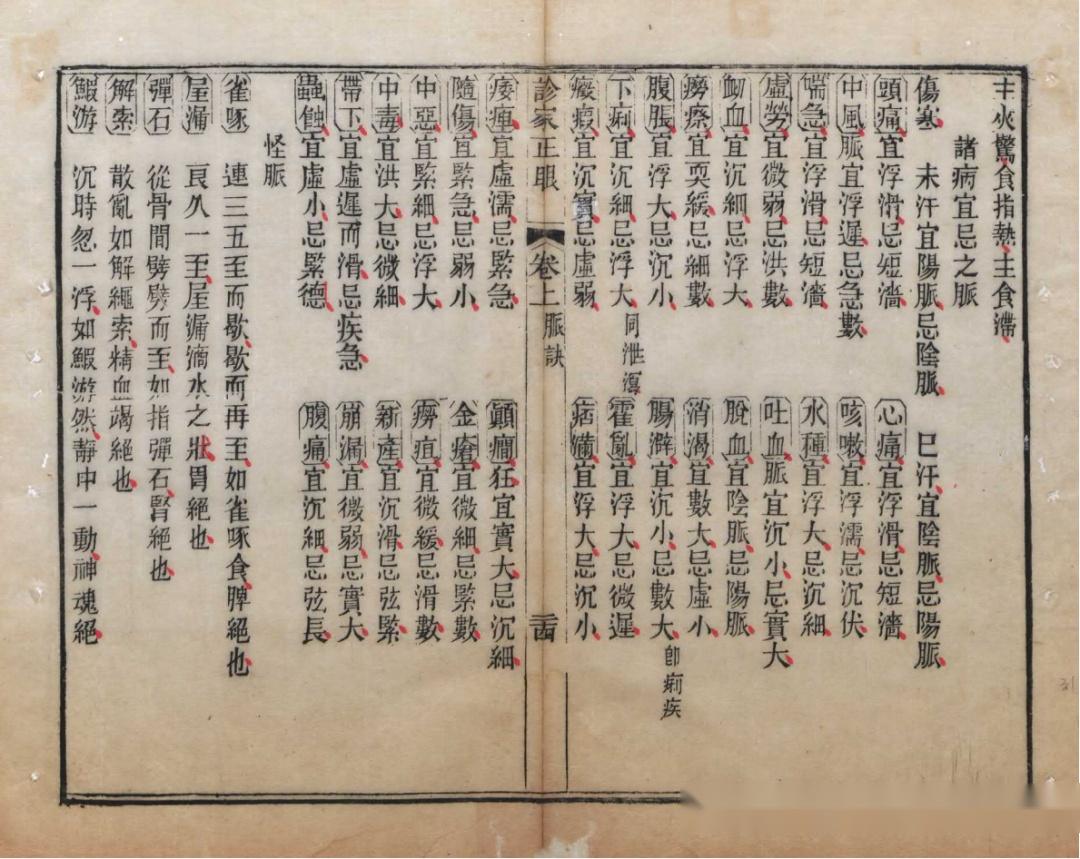 主火驚食指熱主食滯
諸病宜忌之脈
傷寒　未汗宜陽脈忌陰脈　已汗宜陰脈忌陽脈
頭痛宜浮滑忌短濇　心痛宜浮滑忌短濇
中風脈宜浮遲忌急數　咳嗽宜浮濡忌沉伏
喘急宜浮滑忌短濇　水種宜浮大忌沉細
虛勞宜微弱忌洪數　吐血脈宜沉小忌實大
衂血宜沉細忌浮大　脫血宜陰脈忌陽脈
癆瘵宜耎緩忌細數　消渴宜數大忌虛小
腹脹宜浮大忌沉小　腸澼宜沉小忌數大即痢疾
下痢宜沉細忌浮大同泄瀉　霍亂宜浮大忌微遲
癥瘕宜沉實忌虛弱　痞滿宜浮大忌沉小
診家正眼　卷上　脈訣　三四
痿痺宜虛濡忌緊急　顚癎狂宜實大忌沉細
隨傷宜緊急忌弱小　金瘡宜微細忌緊數
中惡宜緊細忌浮大　癰疽宜微緩忌滑數
中毒宜洪大忌微細　新產宜沉滑忌弦緊
帶下宜虛遲而滑忌疾急　崩漏宜微弱忌實大
蟲蝕宜虛小忌緊德　腹痛宜沉細忌弦長
怪脈
雀啄　連三五至而歇歇而再至如雀啄食脾絕也
屋漏　良久一至屋漏滴水之狀胃絕也
彈石　從骨間劈劈而至如指彈石腎絕也
解索　散亂如解繩索精血竭絕也
鰕游　沉時忽一浮如鰕游然靜中一動神魂絕